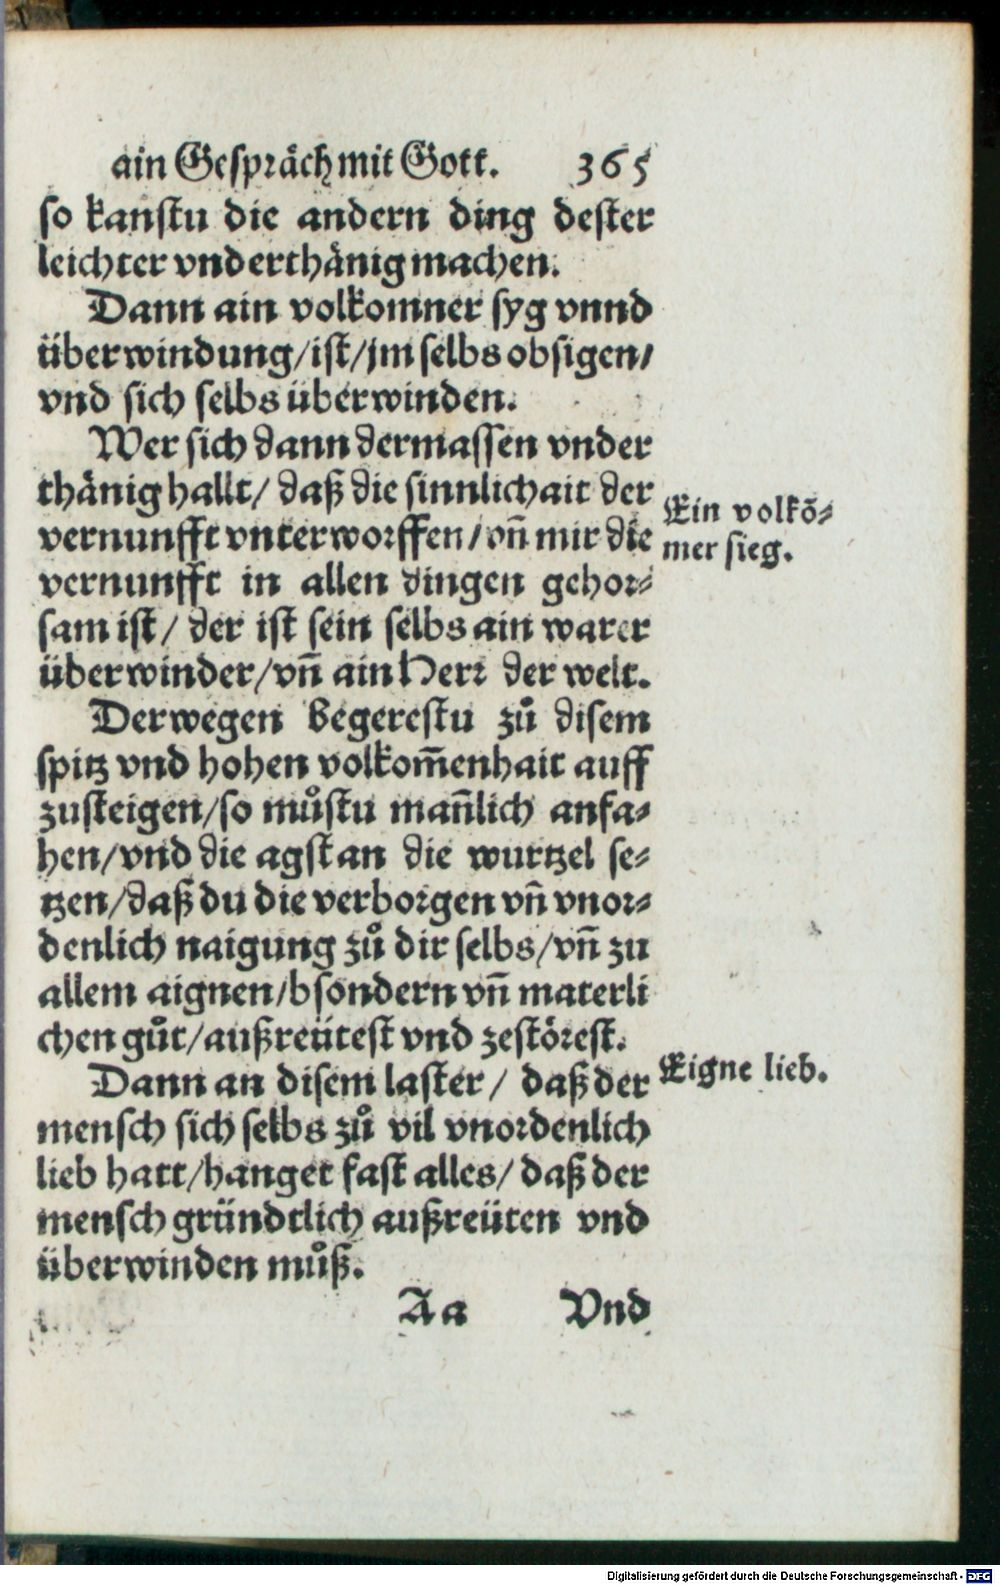 ain Gespräch mit Gott. 365
so kanstu die andern ding dester
leichter vnderthänig machen.
Dann ain volkomner syg vnnd
überwindung/ist/jm selbs obsigen/
vnd sich selbs überwinden.
Wer sich dann dermassen vnder
thänig hallt/ daß die sinnlichait der
vernunfft vnterworffen/vñ mir die
vernunfft in allen dingen gehor-
sam ist/ der ist sein selbs ain warer
überwinder/vñ ain Herr der welt.
Ein volkõ-
mer sieg.
Derwegen begerestu zů disem
spitz vnd hohen volkom̃enhait auff
zusteigen/so můstu mañlich anfa-
hen/vnd die agst an die wurtzel se-
tzen/daß du die verborgen vñ vnor-
denlich naigung zů dir selbs/vñ zu
allem aignen/bsondern vñ materli
chen gůt/außreütest vnd zestörest.
Dann an disem laster/ daß der
mensch sich selbs zů vil vnordenlich
lieb hatt/hanget fast alles/ daß der
mensch gründtlich außreüten vnd
überwinden můß.
Eigne lieb.
Aa Vnd
Digitalisierung gefördert durch die Deutsche Forschungsgemeinschaft - DFG